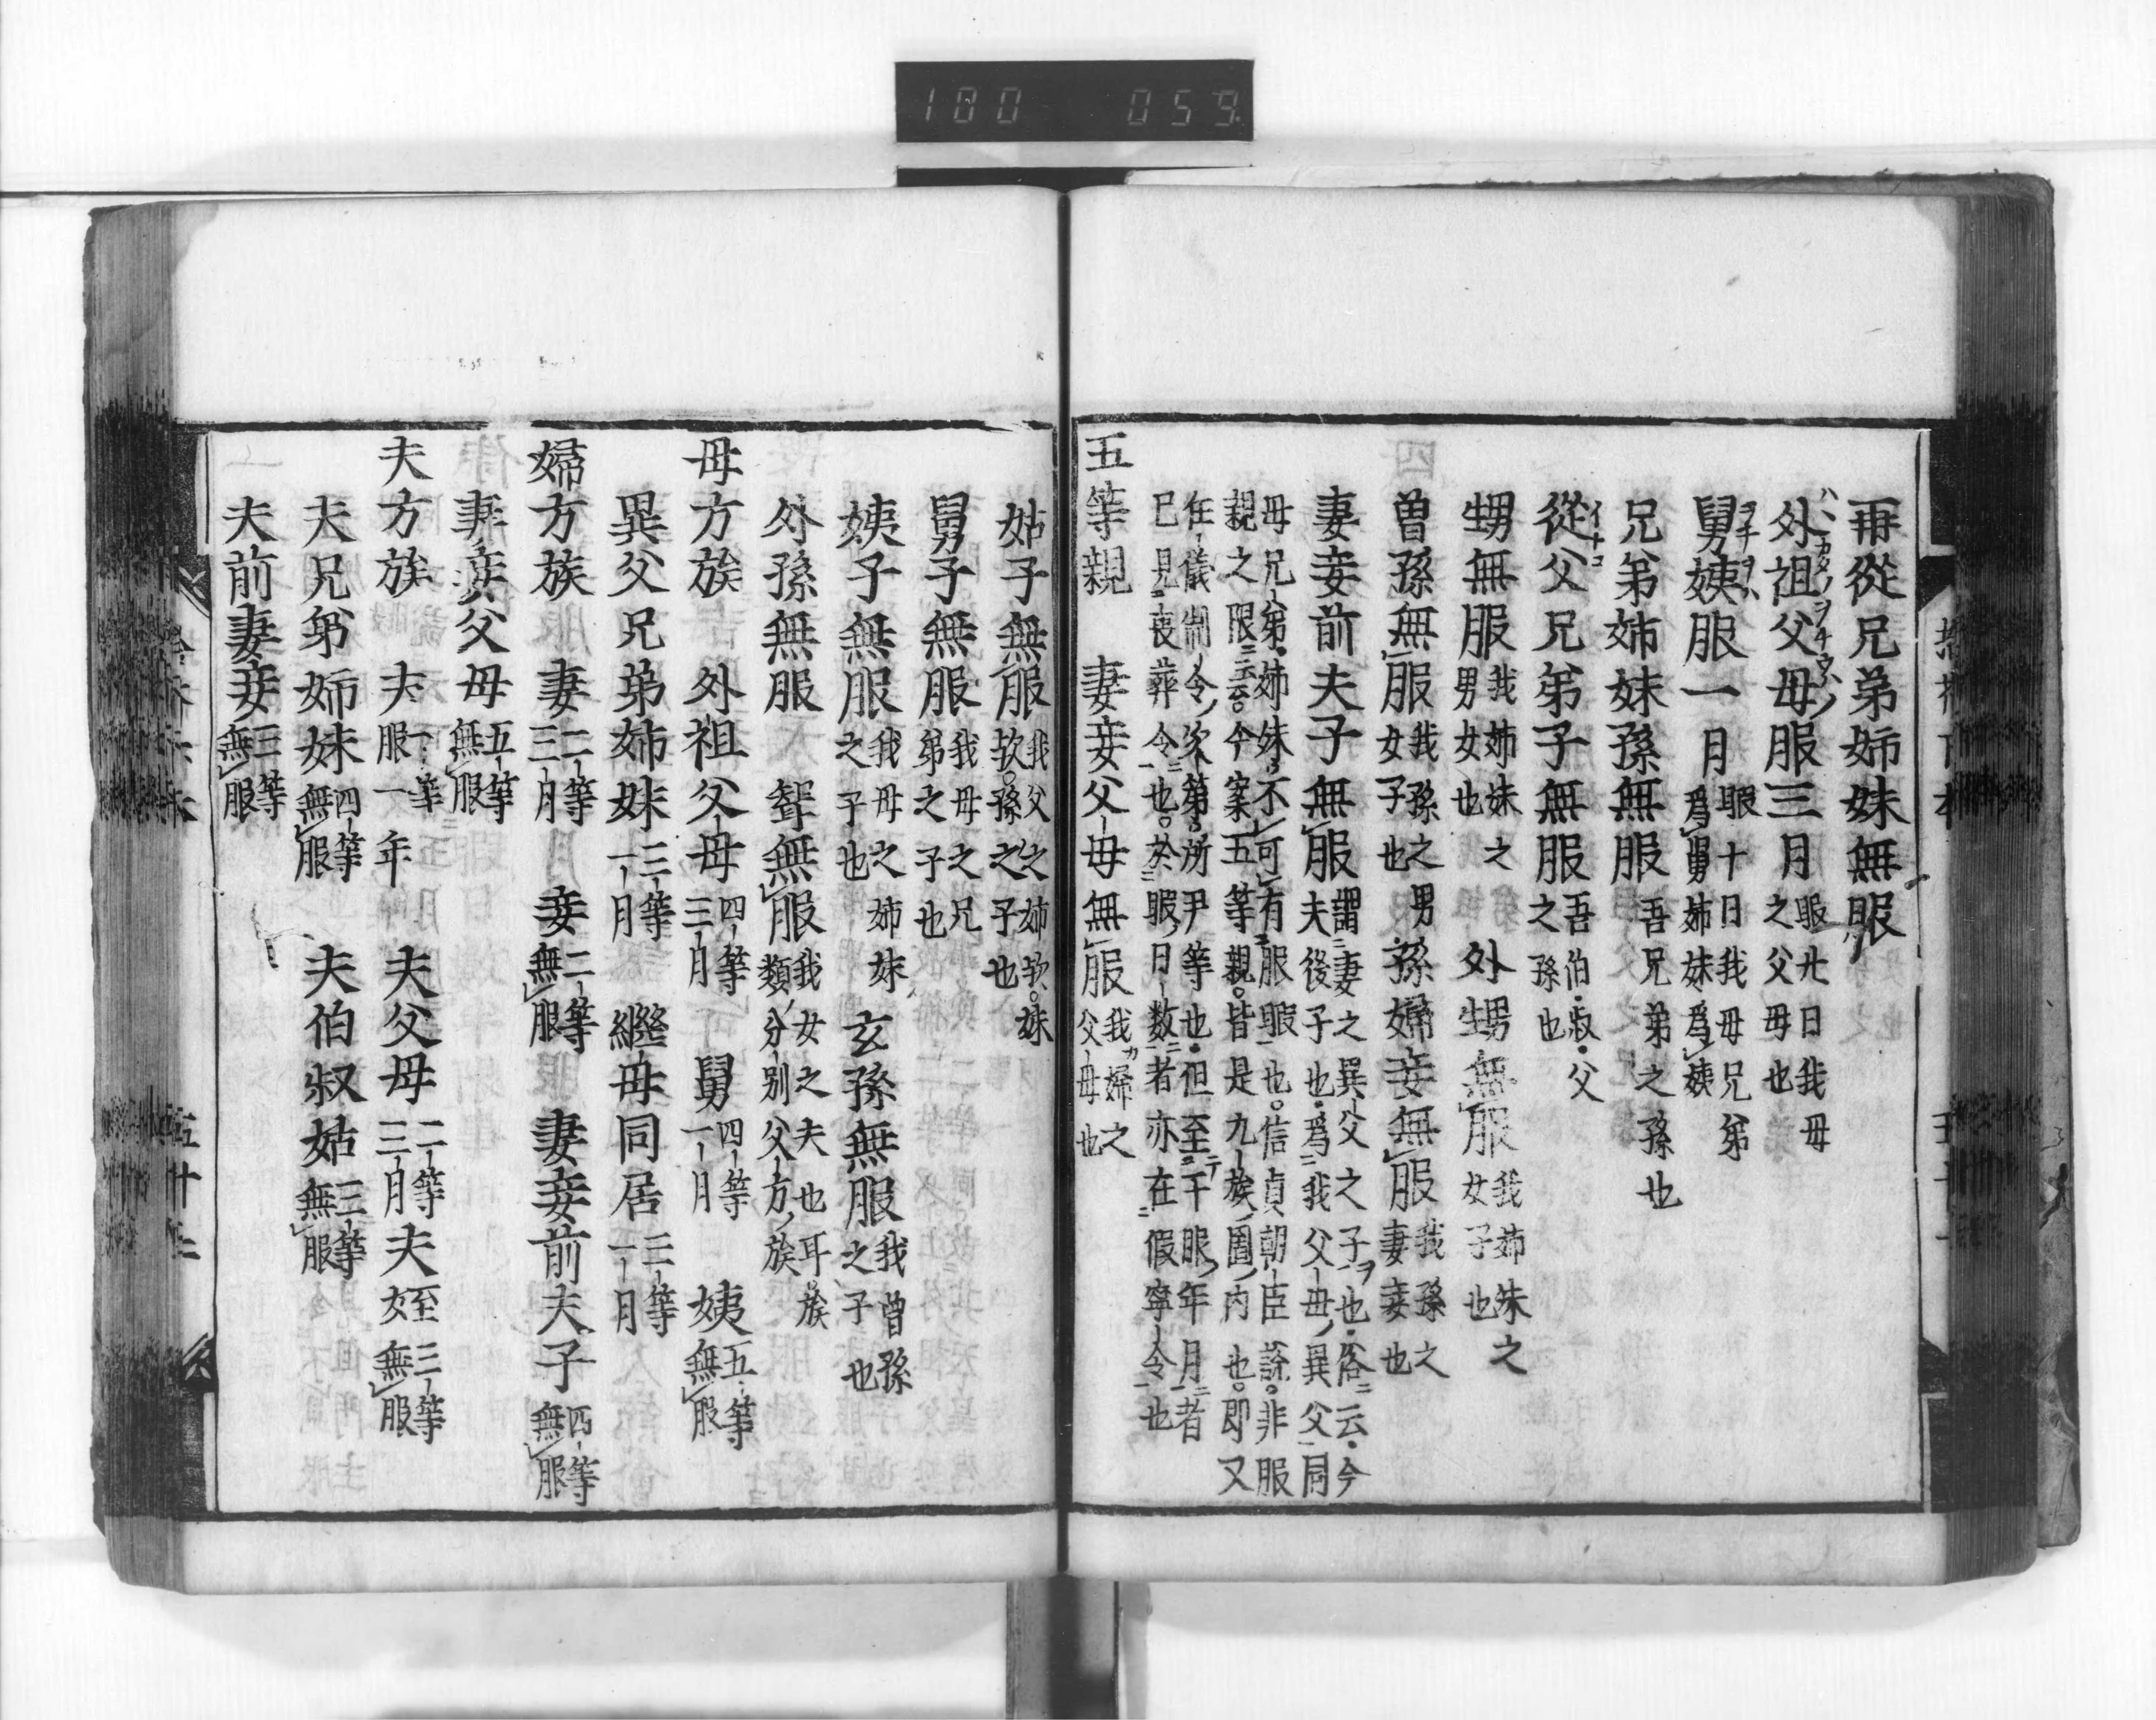 180 059
再從兄弟姉妹無服
外祖父母服三月暇廿日我母之父母也
舅姨服一月暇十日我母兄弟爲舅姉妹爲姨
兄弟姉妹孫無服吾兄弟之孫也
從父兄弟子無服吾伯叔父之孫也
甥無服我姉妹之男女也 外甥無服我姉妹之女子也
曽孫無服我孫之男女子也 孫婦妾無服我孫之妻妾也
妻妾前夫子無服謂妻之異父之子也俗云今夫後子也爲我父母異父同
母兄弟姉妹不可有服暇也信貞朝臣説非服
親之限云云今案五等親皆是九族圖内也即又
在儀制令次第所尹等也但至于服年月者
已見喪葬令也於暇日数者亦在假寧令也
五等親 妻妾父母無服我婦之父母也
姑子無服我父之姉欤妹欤孫之子也
舅子無服我母之兄弟之子也
姨子無服我母之姉妹之子也 玄孫無服我曽孫之子也
外孫無服 聟無服我女之夫也耳族類分別父方族
母方族 外祖父母四等三月 舅四等一月 姨五等無服
異父兄弟姉妹三等一月 繼母同居三等一月
婦方族 妻二等三月 妾二等無服 妻妾前夫子四等無服
妻妾父母五等無服
夫方族 夫一等服一年 夫父母二等三月 夫姪三等無服
夫兄弟姉妹四等無服 夫伯叔姑三等無服
夫前妻妾三等無服